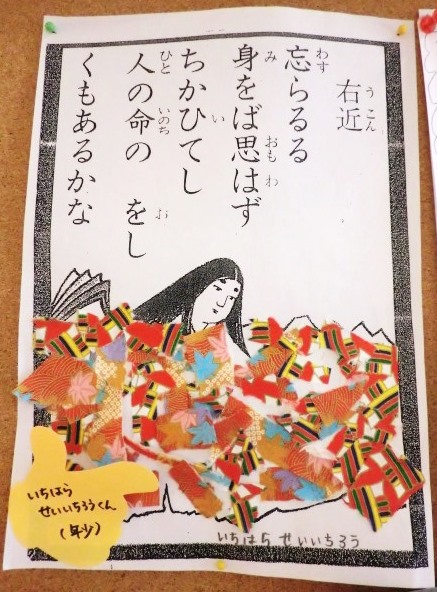 右近
忘らるる
身をば思はず
ちかひてし
人の命の をし
くもあるかな
うこん
わす
み
おも わ
い
ひと
いのち
お
いちはら
せいいちろうくん
(年少)
いちはら せいいちろう